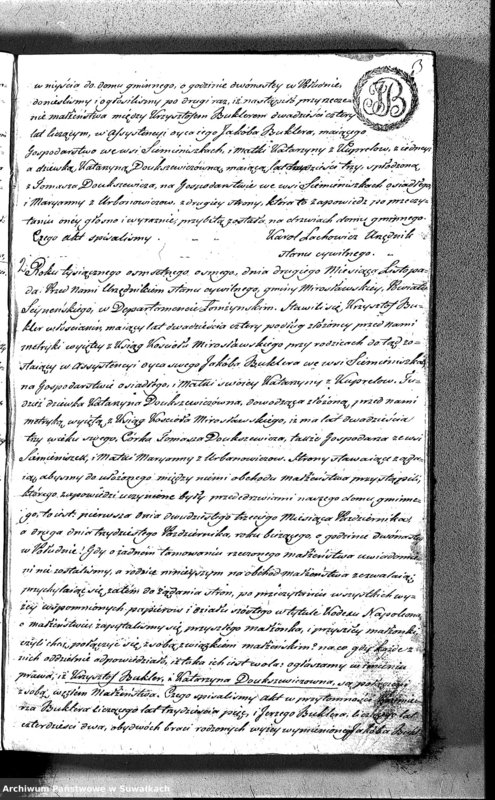 3
JB
w niyścia do domu gminnego, o godzinie dwunastey w Południe,
donieśliśmy i ogłosiliśmy po drugi raz, iż nastąpić przyrzecze-
nie małżeństwa między Krzysztofem Buklerem dwadzieścia cztery
lat liczącym, w Assystencyi oyca iego Jakoba Buklera, maiącego
Gospodarstwo we wsi Siemieniszkach, i Matki Katarzyny z Kuprelow, z iedney
a dziewką Katarzyną Doukszewiczowną, maiącą lat dwadzieścia trzy, spłodzoną
z Tomasza Doukszewicza, na Gospodarstwie we wsi Siemieniszkach osiadłego,
i Maryanny z Urbanowiczow, z drugiey strony, która to zapowiedź po przeczy-
taniu oney głośno i wyraźnie, przybita została na drzwiach domu gminnego.
Czego Akt spisaliśmy.
Karol Lachowicz Urzędnik
stanu cywilnego.
2. Roku tysiącznego osmsetnego osmego, dnia drugiego Miesiąca Listopa-
da. Przed Nami Urzędnikiem stanu cywilnego, gminy Mirosławskiey, Powiatu
Seynenskiego, w Departamencie Łomżynskim. Stawili się Krzysztof Bu-
kler włościanin, maiący lat dwadzieścia cztery podług złożoney przed nami
metryki wyiętey z Xiąg Kościoła Mirosławskiego przy rodzicach do tąd zo-
staiący w Assystencyi oyca swego Jakoba Buklera we wsi Siemieniszkach
na Gospodarstwie osiadłego, i Matki swoiey Katarzyny z Kuprelow. Tu-
dzież dziewka Katarzyna Doukszewiczowna, dowodząca złożoną przed nami
metryką wyiętą z Xiąg Kościoła Mirosławskiego, iż ma lat dwadzieścia
trzy wieku swego, Córka Tomasza Doukszewicza, także Gospodarza ze wsi
Siemieniszek, i Matki Maryanny z Urbanowiczow. Strony stawaiące żąda-
ią, abyśmy do ułożonego między niemi obchodu małżeństwa przystąpili,
którego zapowiedzi uczynione były przed drzwiami naszego domu gminne-
go, to iest: pierwsza dnia dwudziestego trzeciego Miesiąca Października,
a druga dnia trzydziestego Października, roku bieżącego o godzinie dwunastey
w Południe. Gdy o żadnem tamowaniu rzeczonego małżeństwa uwiadomie-
ni nie zostaliśmy, a rodzice ninieyszym na obchod małżeństwa zezwalaią,
przychylaiąc się zatem do żądania stron, po przeczytaniu wszystkich wy-
żey wspomnionych papierow i działu szóstego w tytule Kodexu Napoleona
o małżeństwie, zapytaliśmy się przyszłego małżonka, i przyszłey małżonki
czyli chcą połączyć się z sobą związkiem małżeńskim? na co, gdy każde z
nich oddzielnie odpowiedziało, iż taka ich iest wola: ogłaszamy w imieniu
prawa, iż Krzysztof Bukler, i Katarzyna Doukszewiczowna, są połączeni
z sobą węzłem Małżeństwa. Czego spisaliśmy akt w przytomności Kazimie-
rza Buklera liczącego lat trzydzieścia pięć, i Jerzego Buklera, liczącego lat
czterdzieści dwa, obydwoch braci rodzonych wyżey wymienionego Jakoba Bukl-
Archiwum Państwowe w Suwałkach